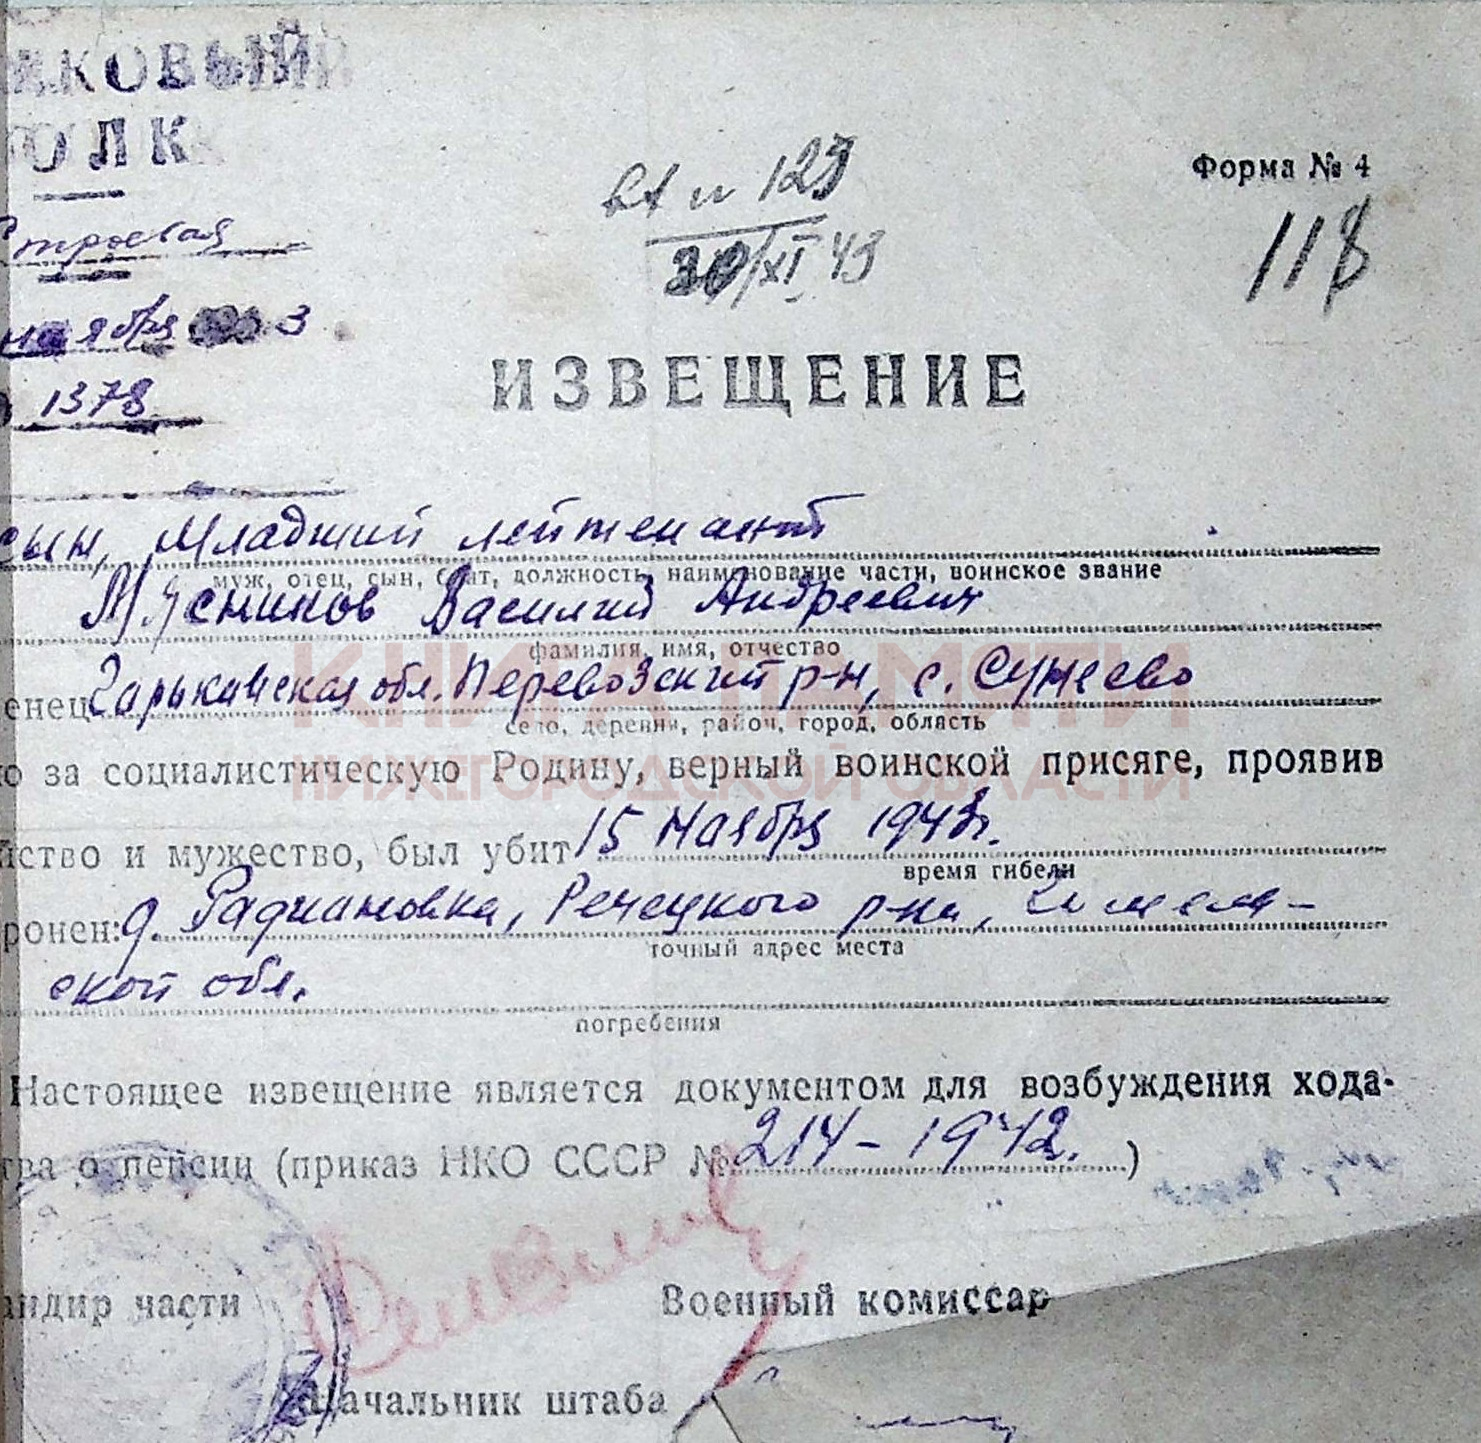 ОВЫЙ
ОЛК
вх н 123
30/XI 43
Форма № 4
118
Строевая
ноября 3
1378
ИЗВЕЩЕНИЕ
сын, Младший лейтенант
муж, отец, сын, брат, должность, наименование части, воинское звание
Мясников Василий Андреевич
фамилия, имя, отчество
енец Гарьковская обл. Перевозский р-н, с. Сунеево
село, деревня, район, город, область
ю за социалистическую Родину, верный воинской присяге, проявив
йство и мужество, был убит 15 Ноября 1943г.
время гибели
ронен: д. Радиановка, Речецкого р-на,
точный адрес места
ской обл.
погребения
Настоящее извещение является документом для возбуждения хода-
тва о пенсии (приказ НКО СССР № 214-1942.)
андир части
Военный комиссар
Начальник штаба
КНИГА ПАМЯТИ
НИЖЕГОРОДСКОЙ ОБЛАСТИ